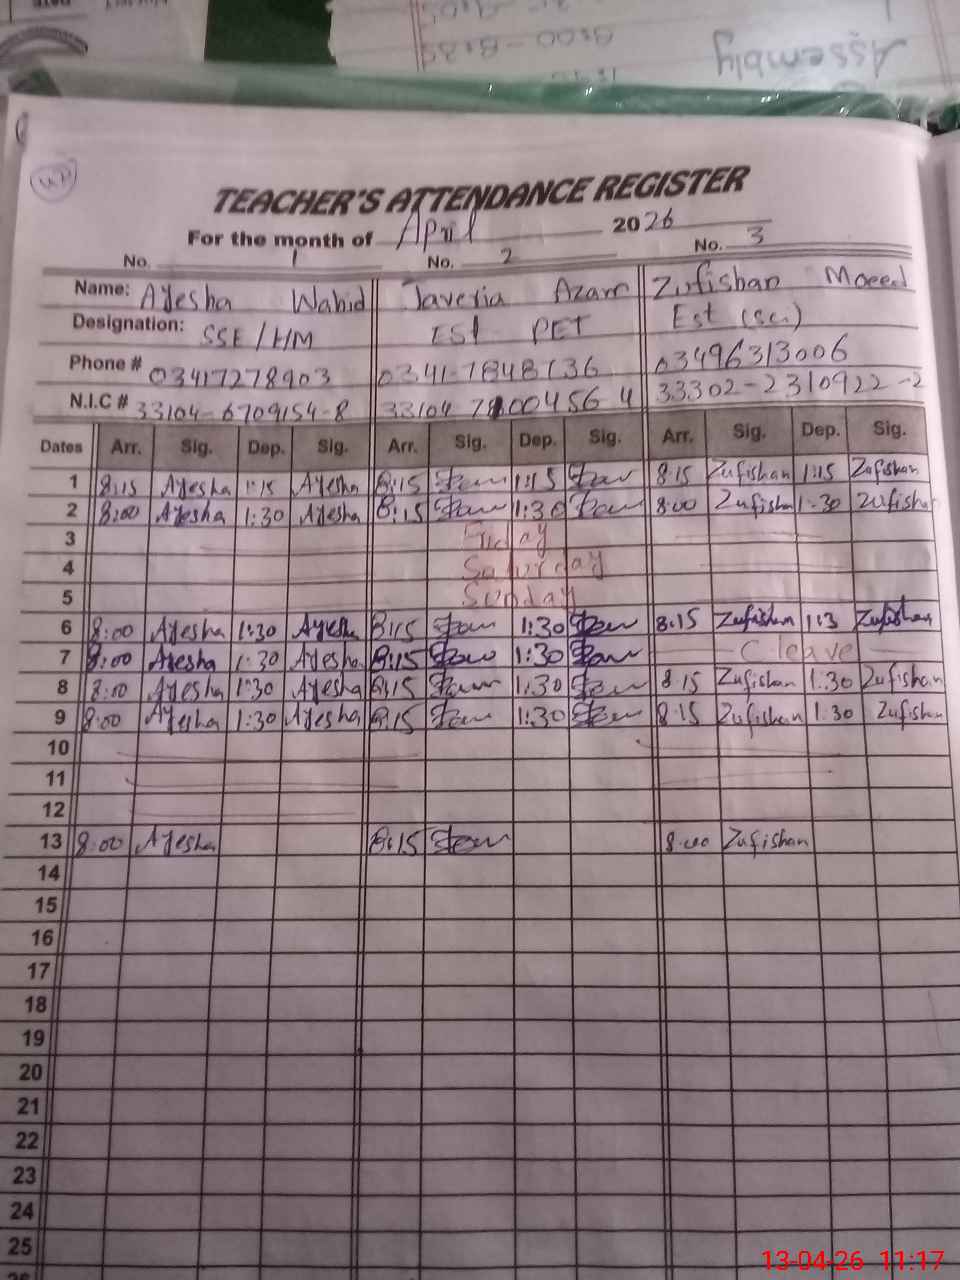 Assembly
8:00 - 8:35
UP
TEACHER'S ATTENDANCE REGISTER
For the month of April 2026
No. 1 No. 2 No. 3
Name: Ayesha Wahid Javeria Azam Zufishan Moeed
Designation: SSE/HM EST PET Est (sci)
Phone # 03417278903 0341-7848136 03496313006
N.I.C # 33104-6709154-8 33104 00456-4 33302-2310922-2
Dates Arr. Sig. Dep. Sig. Arr. Sig. Dep. Sig. Arr. Sig. Dep. Sig.
1 8:15 Ayesha 1:15 Ayesha 8:15 1:15 8:15 Zufishan 1:15 Zufishan
2 8:00 Ayesha 1:30 Ayesha 8:15 1:30 8:00 Zufishan 1-30 Zufisha
3 Friday
4 Saturday
5 Sunday
6 8:00 Ayesha 1:30 Ayesha 8:15 1:30 8:15 Zufishan 1:3 Zufishan
7 8:00 Ayesha 1:30 Ayesha 8:15 1:30 C.leave
8 8:00 Ayesha 1:30 Ayesha 8:15 1:30 8:15 Zufishan 1:30 Zufishan
9 8:00 Ayesha 1:30 Ayesha 8:15 1:30 8:15 Zufishan 1:30 Zufishan
10
11
12
13 8:00 Ayesha 8:15 8:00 Zufishan
14
15
16
17
18
19
20
21
22
23
24
25
13-04-26 11:17